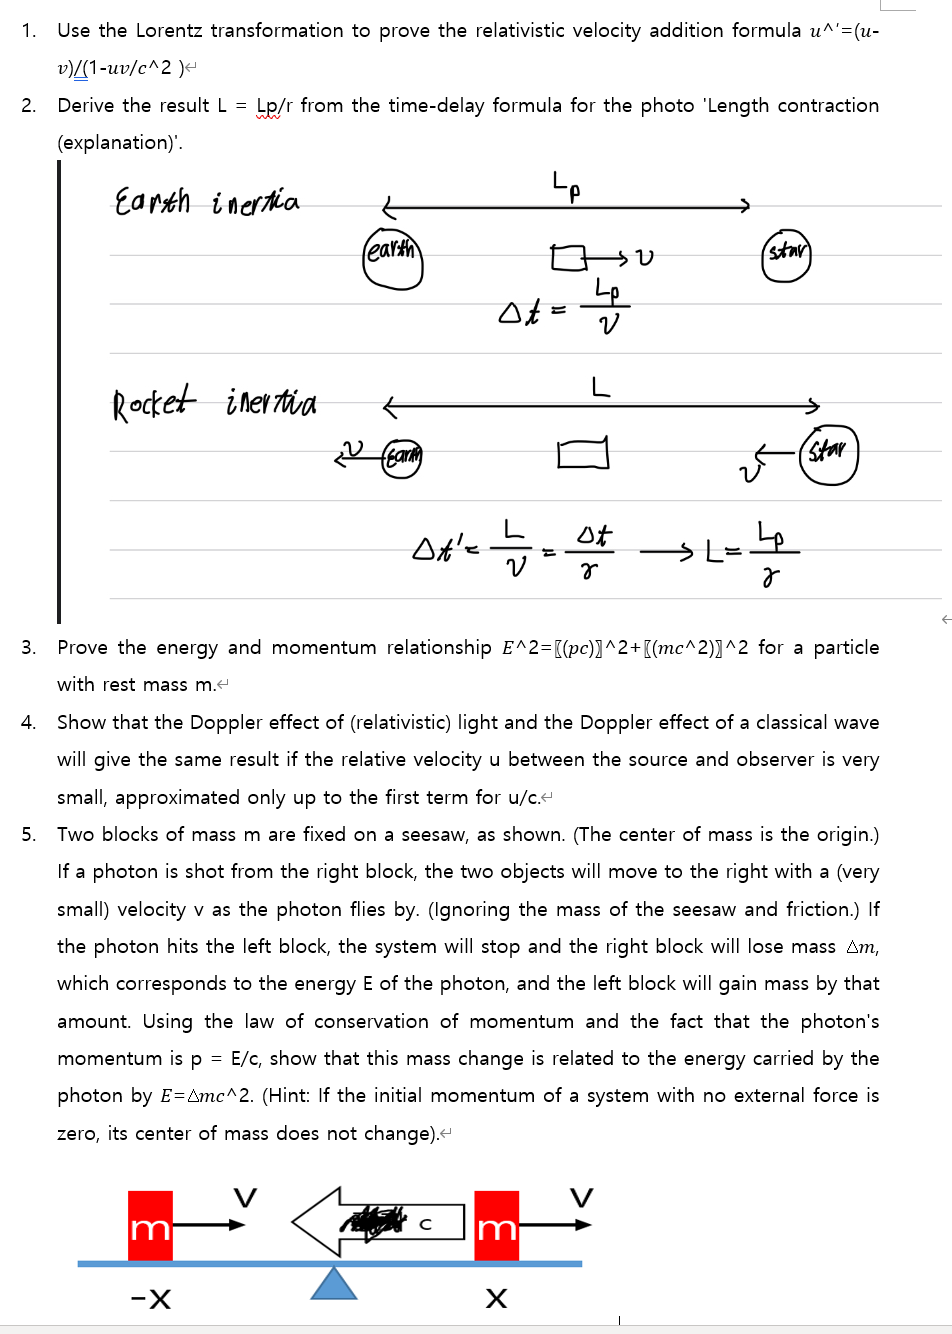 1. Use the Lorentz transformation to prove the relativistic velocity addition formula u^'=(u-
v)/(1-uv/c^2 )↵
2. Derive the result L = Lp/r from the time-delay formula for the photo 'Length contraction
(explanation)'.
Lp
Earth inertia
earth
v
star
Δt = Lp/v
L
Rocket inertia
v
Earth
v
star
Δt' = L/v = Δt/γ → L = Lp/γ
3. Prove the energy and momentum relationship E^2=〖(pc)〗^2+〖(mc^2)〗^2 for a particle
with rest mass m.↵
4. Show that the Doppler effect of (relativistic) light and the Doppler effect of a classical wave
will give the same result if the relative velocity u between the source and observer is very
small, approximated only up to the first term for u/c.↵
5. Two blocks of mass m are fixed on a seesaw, as shown. (The center of mass is the origin.)
If a photon is shot from the right block, the two objects will move to the right with a (very
small) velocity v as the photon flies by. (Ignoring the mass of the seesaw and friction.) If
the photon hits the left block, the system will stop and the right block will lose mass Δm,
which corresponds to the energy E of the photon, and the left block will gain mass by that
amount. Using the law of conservation of momentum and the fact that the photon's
momentum is p = E/c, show that this mass change is related to the energy carried by the
photon by E=Δmc^2. (Hint: If the initial momentum of a system with no external force is
zero, its center of mass does not change).↵
V
V
m
c
m
-X
X